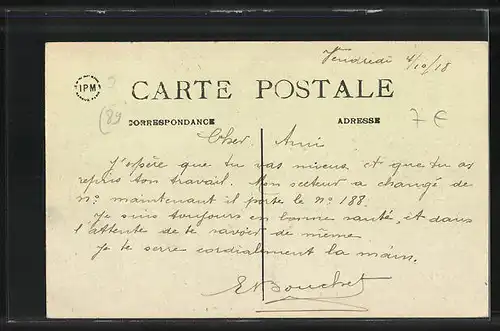 Vendredi 4/10/18
IPM
CARTE POSTALE
(89
7 €
CORRESPONDANCE
ADRESSE
Cher Ami
J'espère que tu vas mieux, et que tu as
repris ton travail. Mon secteur a changé de
n°. maintenant il porte le n° 188.
Je suis toujours en bonne santé, et dans
l'attente de te savoir de même
je te serre cordialement la main.
Bouchet